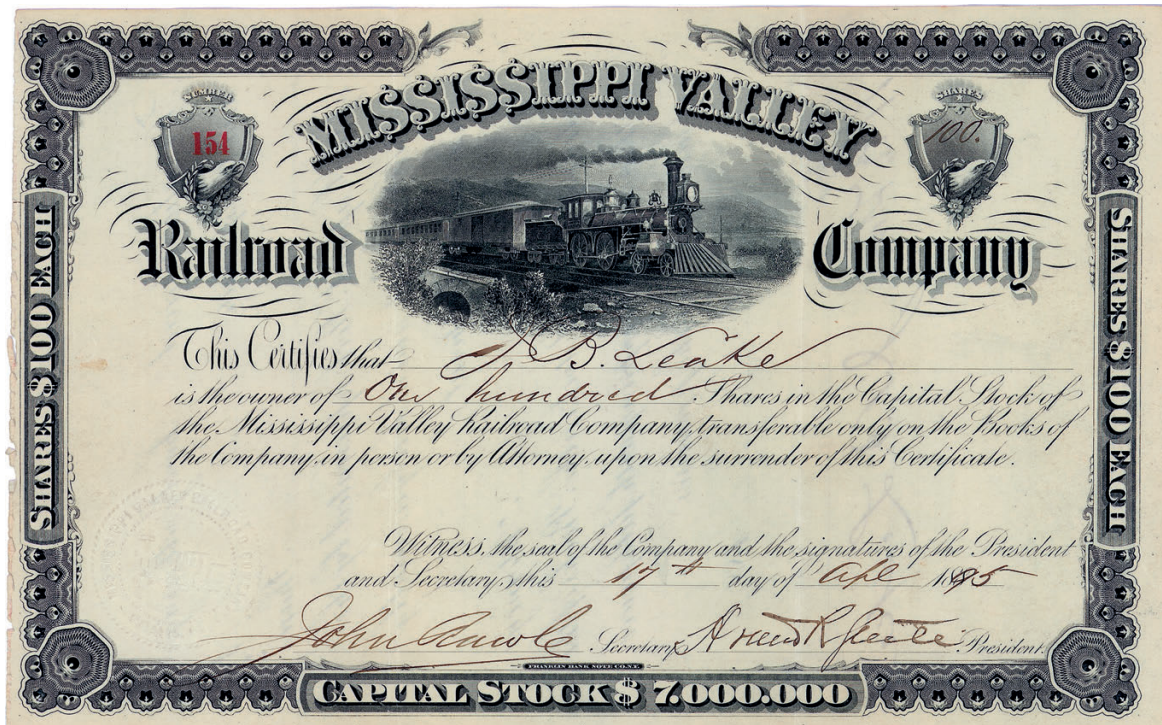 NUMBER
154
SHARES
100.
MISSISSIPPI VALLEY
Railroad Company
SHARES $100 EACH
SHARES $100 EACH
This Certifies that J B. Leake
is the owner of One hundred Shares in the Capital Stock of
the Mississippi Valley Railroad Company, transferable only on the Books of
the Company, in person or by Attorney, upon the surrender of this Certificate.
Witness, the seal of the Company and the signatures of the President
and Secretary, this 17th day of Apl 1885
John Rawle Secretary President.
FRANKLIN BANK NOTE CO. N.Y.
CAPITAL STOCK $ 7.000.000